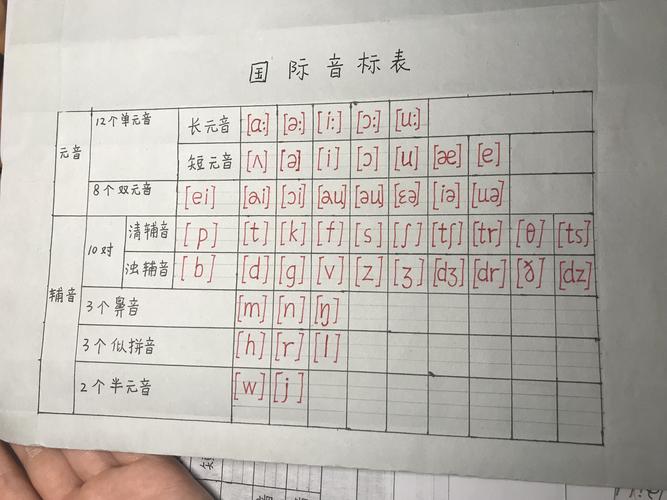 国际音标表
元音 12个单元音 长元音 [ɑ:] [ə:] [i:] [ɔ:] [u:]
短元音 [ʌ] [ə] [i] [ɔ] [u] [æ] [e]
8个双元音 [ei] [ai] [ɔi] [au] [əu] [εə] [iə] [uə]
辅音 10对 清辅音 [p] [t] [k] [f] [s] [ʃ] [tʃ] [tr] [θ] [ts]
浊辅音 [b] [d] [g] [v] [z] [ʒ] [dʒ] [dr] [ð] [dz]
3个鼻音 [m] [n] [ŋ]
3个似拼音 [h] [r] [l]
2个半元音 [w] [j]